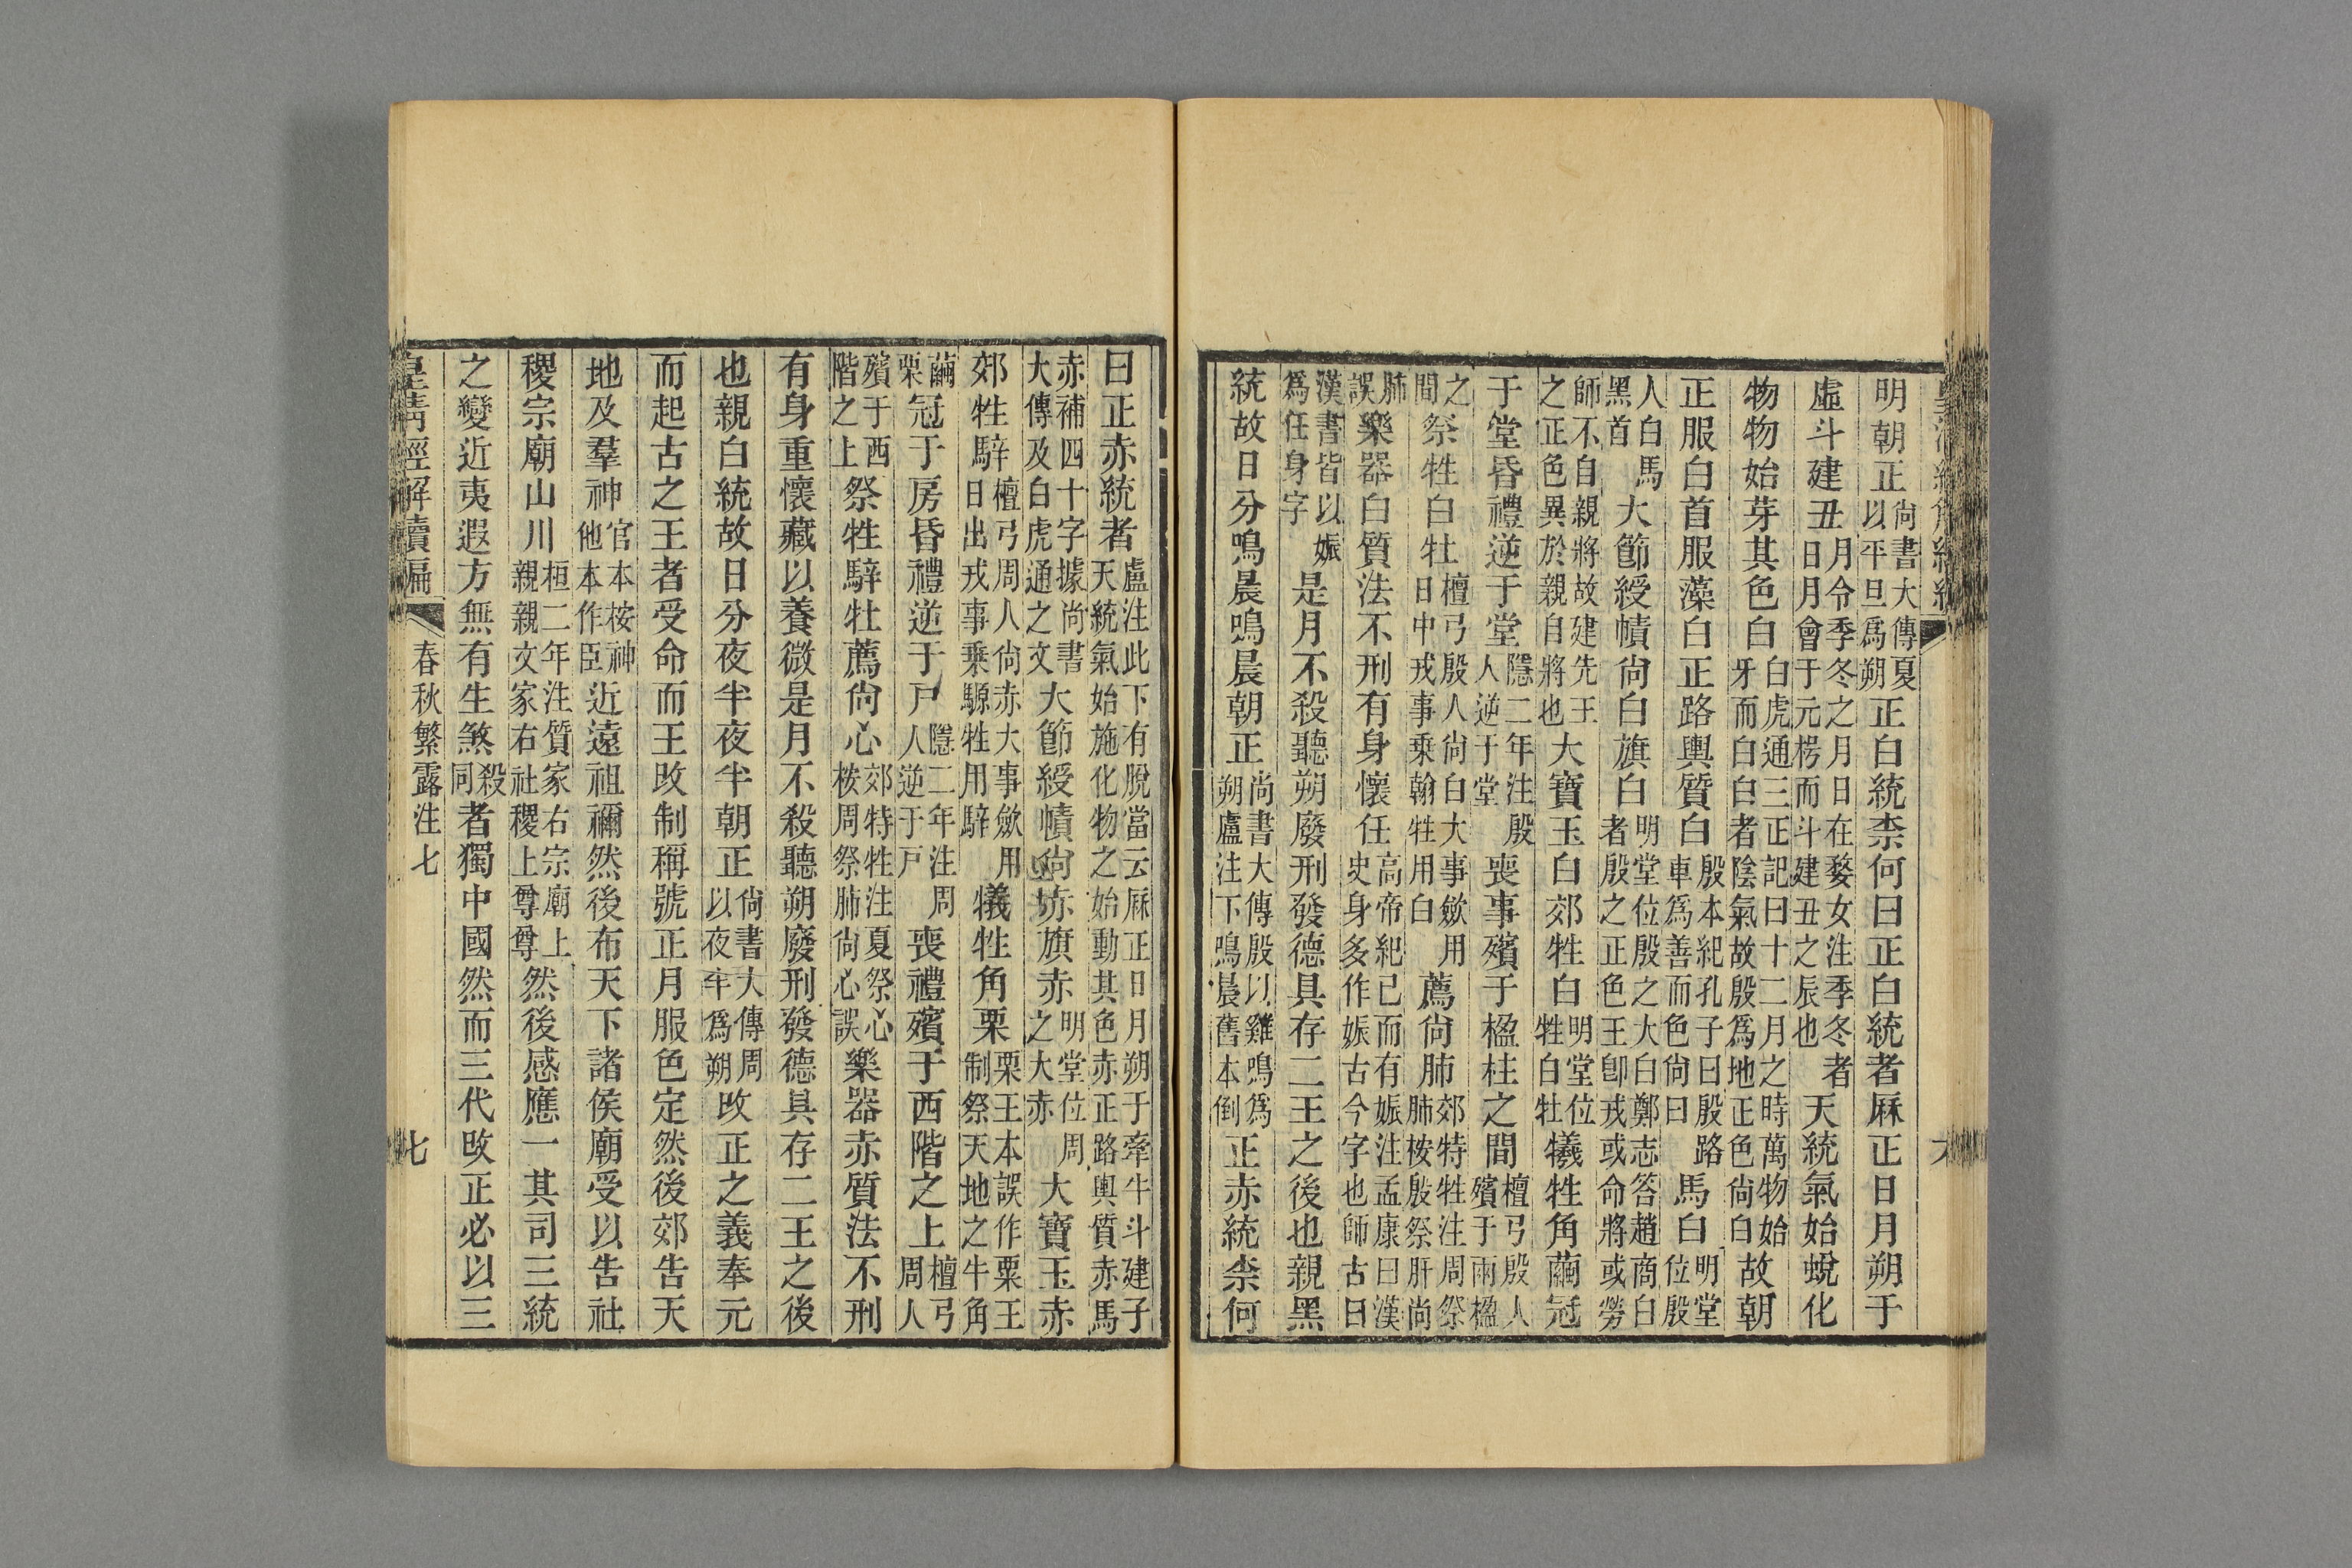 明朝正尙書大傳夏以平旦爲朔正白統柰何曰正白統者厤正日月朔于
虛斗建丑月令季冬之月日在婺女注季冬者日月會于元枵而斗建丑之辰也天統氣始蛻化
物物始芽其色白白虎通三正記曰十二月之時萬物始牙而白白者陰氣故殷爲地正色尙白故朝
正服白首服藻白正路輿質白殷本紀孔子曰殷路車爲善而色尙曰馬白明堂位殷
人白馬黑首大節綬幘尙白旗白明堂位殷之大白鄭志答趙商白者殷之正色王卽戎或命將或勞
師不自親將故建先王之正色異於親自將也大寶玉白郊牲白明堂位牲白牡犧牲角繭冠
于堂昏禮逆于堂隱二年注殷人逆于堂喪事殯于楹柱之間檀弓殷人殯于兩楹
之間祭牲白牡檀弓殷人尙白大事歛用日中戎事乗翰牲用白薦尙肺郊特牲注周祭肺桉殷祭肝尚
肺誤樂器白質法不刑有身懷任高帝紀已而有娠注孟康曰漢史身多作娠古今字也師古曰
漢書皆以娠爲任身字是月不殺聽朔廢刑發德具存二王之後也親黑
統故日分鳴晨鳴晨朝正尚書大傳殷以雞鳴爲朔盧注下鳴晨舊本倒正赤統柰何
曰正赤統者盧注此下有脫當云厤正日月朔于牽牛斗建子天統氣始施化物之始動其色赤正路輿質赤馬
赤補四十字據尚書大傳及白虎通之文大節綬幘尙赤旗赤明堂位周之大赤大寶玉赤
郊牲騂檀弓周人尙赤大事歛用日出戎事乗騵牲用騂犧牲角栗栗王本誤作粟王制祭天地之牛角
繭栗冠于房昏禮逆于戶隱二年注周人逆于戶喪禮殯于西階之上檀弓周人
殯于西階之上祭牲騂牡薦尙心郊特牲注夏祭心桉周祭肺尙心誤樂器赤質法不刑
有身重懷藏以養微是月不殺聽朔廢刑發德具存二王之後
也親白統故日分夜半夜半朝正尙書大傳周以夜半爲朔攺正之義奉元
而起古之王者受命而王攺制稱號正月服色定然後郊告天
地及羣神官本桉神他本作臣近遠祖禰然後布天下諸侯廟受以告社
稷宗廟山川桓二年注質家右宗廟上親親文家右社稷上尊尊然後感應一其司三統
之變近夷遐方無有生煞殺同者獨中國然而三代攺正必以三
皇淸經解續編 春秋繁露注七 七